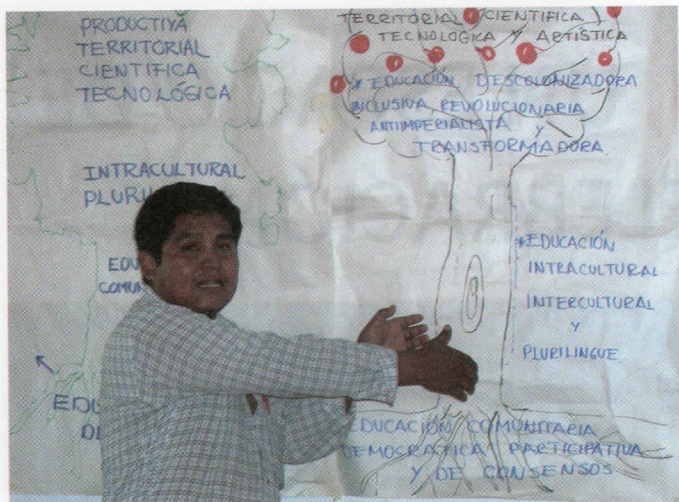 PRODUCTIVA
TERRITORIAL
CIENTÍFICA
TECNOLÓGICA
INTRACULTURAL
TERRITORIAL CIENTÍFICA
TECNOLÓGICA Y ARTÍSTICA
* EDUCACIÓN DESCOLONIZADORA
INCLUSIVA REVOLUCIONARIA
ANTIIMPERIALISTA Y
TRANSFORMADORA
* EDUCACIÓN
INTRACULTURAL
INTERCULTURAL
Y
PLURILINGUE
EDUCACIÓN COMUNITARIA
DEMOCRÁTICA PARTICIPATIVA
Y DE CONSENSOS